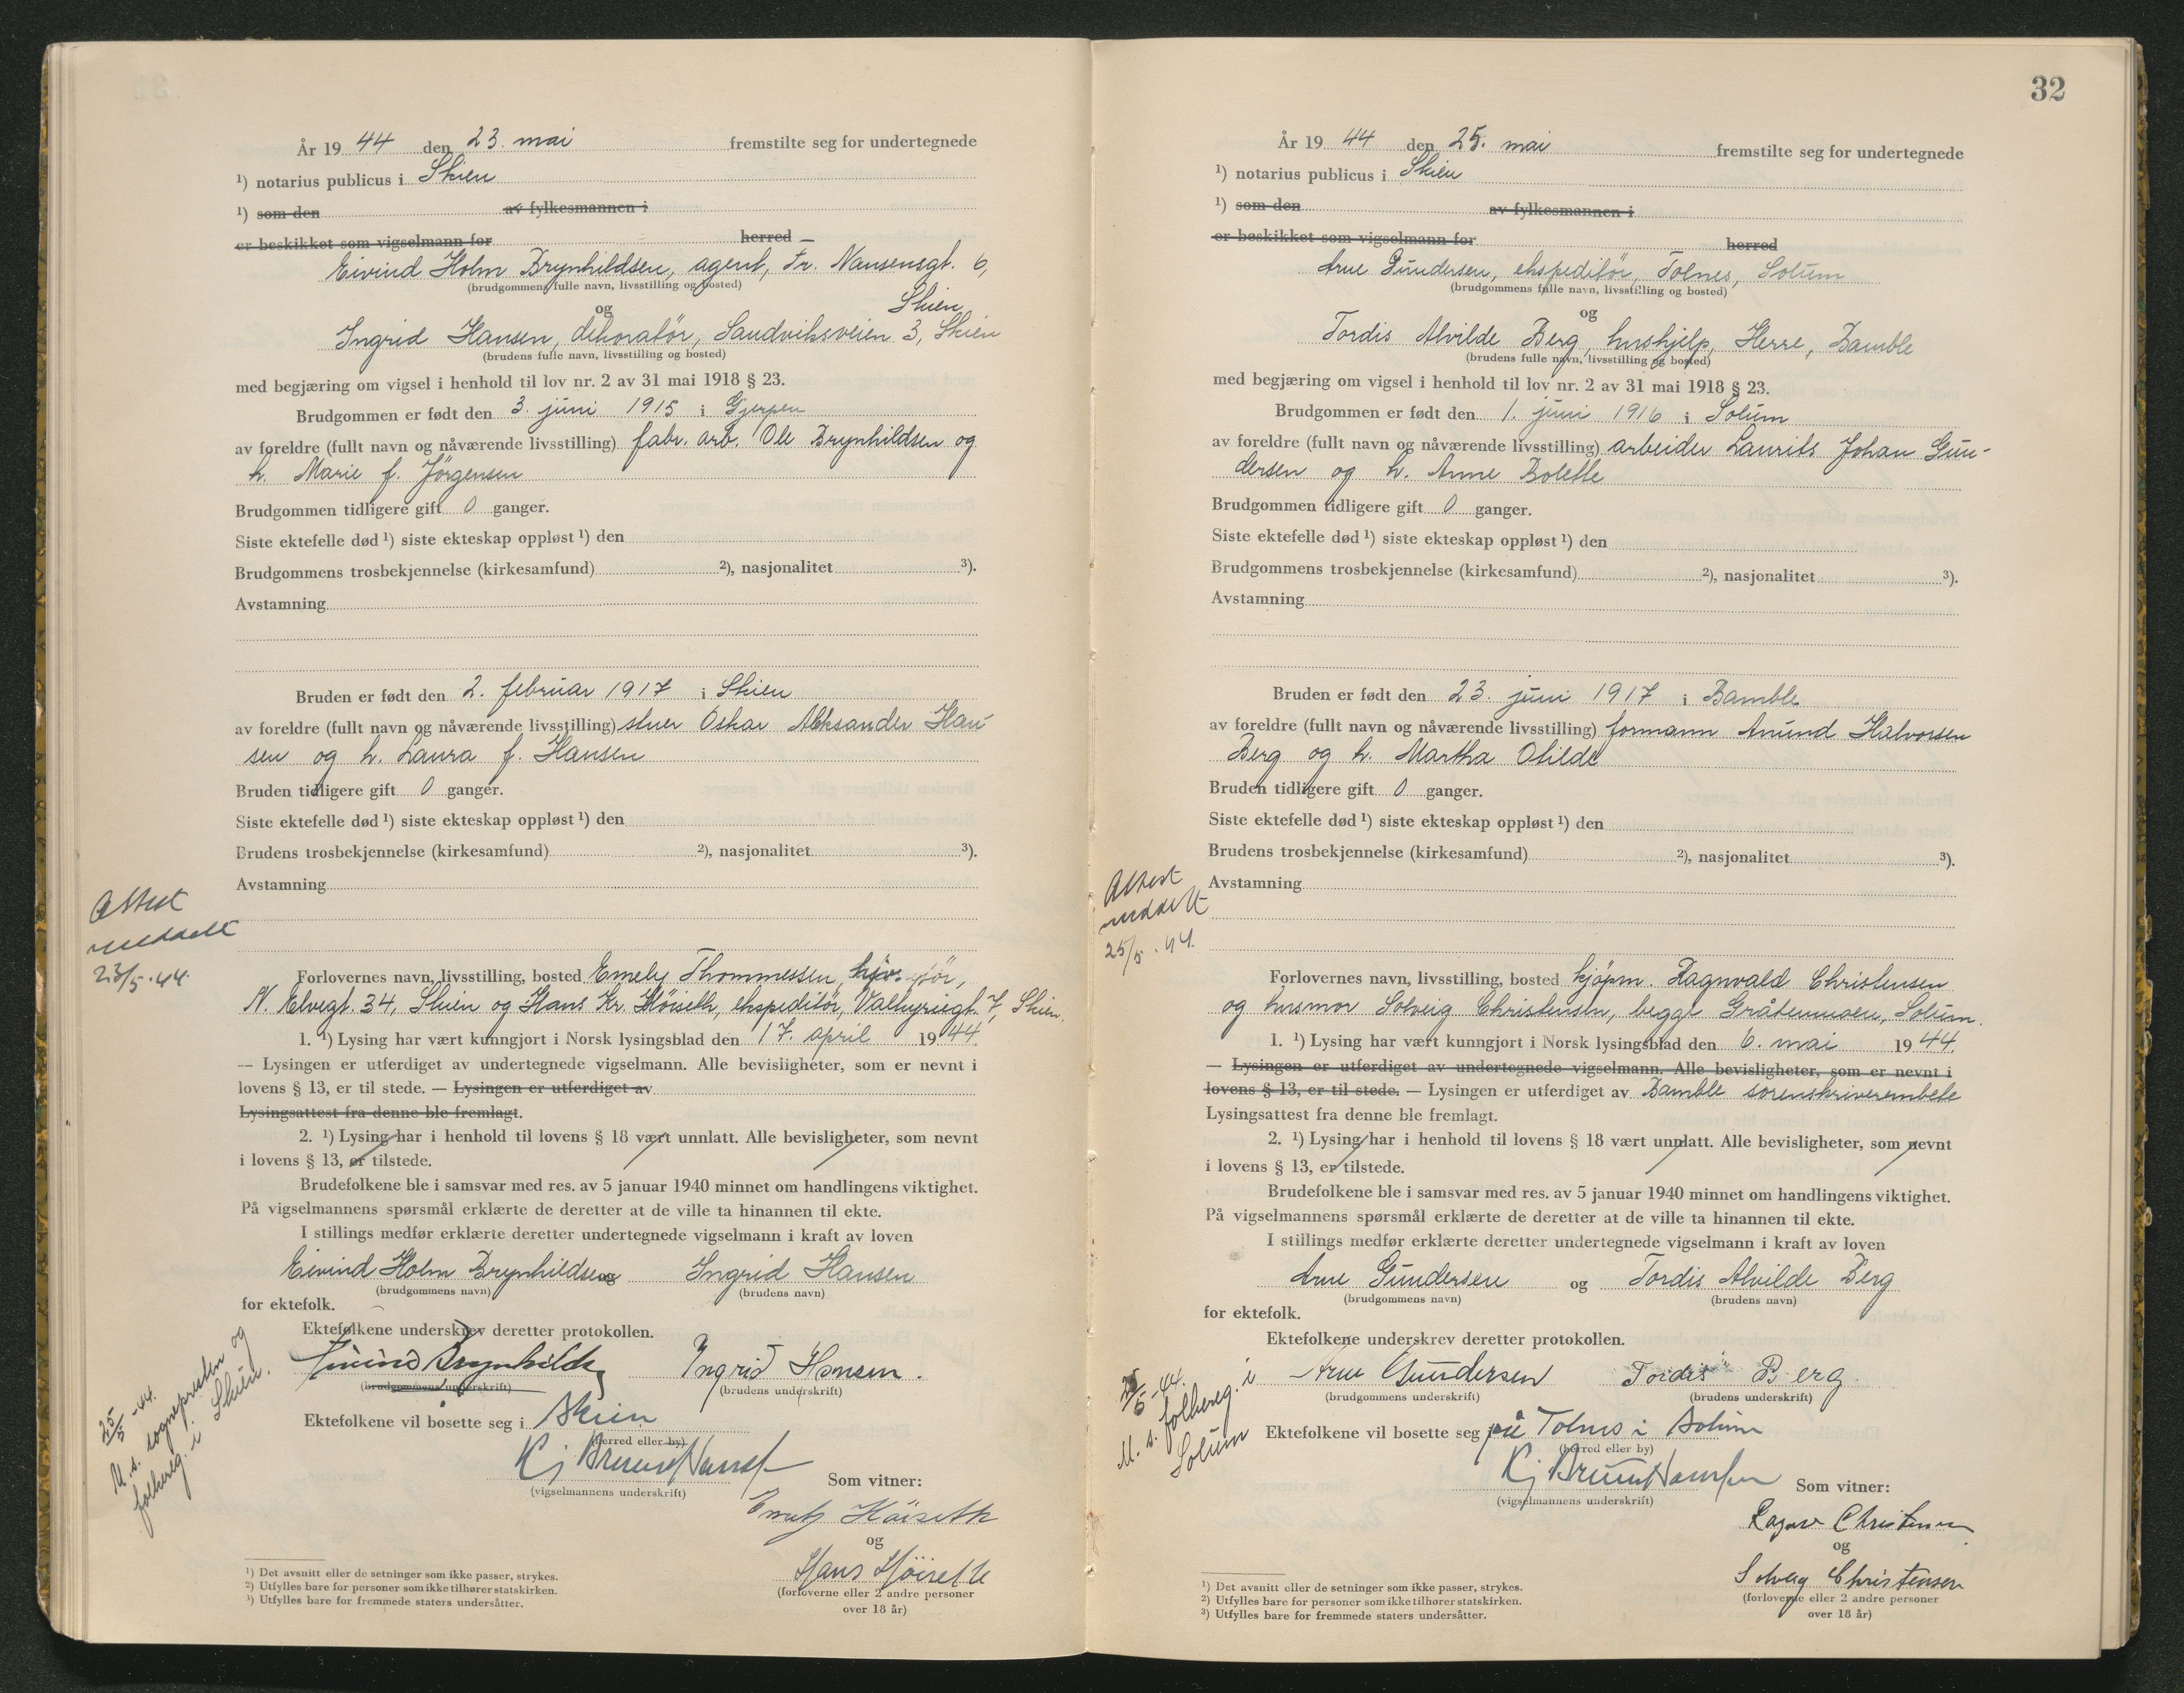 År 19 44 den 23. mai fremstilte seg for undertegnede
¹) notarius publicus i Skien
¹) som den av fylkesmannen i
er beskikket som vigselmann for herred
Eivind Holm Brynhildsen, agent, Fr. Nansensgt. 6,
(brudgommens fulle navn, livsstilling og bosted)
Skien
og
Ingrid Hansen, dekoratör, Sandviksveien 3, Skien
(brudens fulle navn, livsstilling og bosted)
med begjæring om vigsel i henhold til lov nr. 2 av 31 mai 1918 § 23.
Brudgommen er født den 3. juni 1915 i Gjerpen
av foreldre (fullt navn og nåværende livsstilling) fabr. arb. Ole Brynhildsen og
h. Marie f. Jörgensen
Brudgommen tidligere gift 0 ganger.
Siste ektefelle død ¹) siste ekteskap oppløst ¹) den
Brudgommens trosbekjennelse (kirkesamfund) ²), nasjonalitet ³).
Avstamning
Bruden er født den 2. februar 1917 i Skien
av foreldre (fullt navn og nåværende livsstilling) stuer Oskar Aleksander Han-
sen og h. Laura f. Hansen
Bruden tidligere gift 0 ganger.
Siste ektefelle død ¹) siste ekteskap oppløst ¹) den
Brudens trosbekjennelse (kirkesamfund) ²), nasjonalitet ³).
Avstamning
Attest
meddelt
23/5.44.
Forlovernes navn, livsstilling, bosted Emely Thommessen,
N. Elvegt. 34, Skien og Hans Kr. Höiseth, ekspeditör, Valkyriegt. 7, Skien.
1. ¹) Lysing har vært kunngjort i Norsk lysingsblad den 17. april 1944.
— Lysingen er utferdiget av undertegnede vigselmann. Alle bevisligheter, som er nevnt i
lovens § 13, er til stede. — Lysingen er utferdiget av
Lysingsattest fra denne ble fremlagt.
2. ¹) Lysing har i henhold til lovens § 18 vært unnlatt. Alle bevisligheter, som nevnt
i lovens § 13, er tilstede.
Brudefolkene ble i samsvar med res. av 5 januar 1940 minnet om handlingens viktighet.
På vigselmannens spørsmål erklærte de deretter at de ville ta hinannen til ekte.
I stillings medfør erklærte deretter undertegnede vigselmann i kraft av loven
Eivind Holm Brynhildsen og Ingrid Hansen
(brudgommens navn) (brudens navn)
for ektefolk.
Ektefolkene underskrev deretter protokollen.
Eivind Brynhildsen Ingrid Hansen.
(brudgommens underskrift) (brudens underskrift)
Ektefolkene vil bosette seg i Skien
(herred eller by)
25/5-44.
M. s. sognepresten og
folkereg. i Skien.
(vigselmannens underskrift)
Som vitner:
Emely Höiseth
og
Hans Höiseth
(forloverne eller 2 andre personer
over 18 år)
¹) Det avsnitt eller de setninger som ikke passer, strykes.
²) Utfylles bare for personer som ikke tilhører statskirken.
³) Utfylles bare for fremmede staters undersåtter.
32
År 19 44 den 25. mai fremstilte seg for undertegnede
¹) notarius publicus i Skien
¹) som den av fylkesmannen i
er beskikket som vigselmann for herred
Arne Gundersen, ekspeditör, Tolnes, Solum
(brudgommens fulle navn, livsstilling og bosted)
og
Tordis Alvilde Berg, hushjelp, Herre, Bamble
(brudens fulle navn, livsstilling og bosted)
med begjæring om vigsel i henhold til lov nr. 2 av 31 mai 1918 § 23.
Brudgommen er født den 1. juni 1916 i Solum
av foreldre (fullt navn og nåværende livsstilling) arbeider Laurits Johan Gun-
dersen og h. Anne Bolette
Brudgommen tidligere gift 0 ganger.
Siste ektefelle død ¹) siste ekteskap oppløst ¹) den
Brudgommens trosbekjennelse (kirkesamfund) ²), nasjonalitet ³).
Avstamning
Bruden er født den 23. juni 1917 i Bamble
av foreldre (fullt navn og nåværende livsstilling) formann Anund Halvorsen
Berg og h. Martha Otilde
Bruden tidligere gift 0 ganger.
Siste ektefelle død ¹) siste ekteskap oppløst ¹) den
Brudens trosbekjennelse (kirkesamfund) ²), nasjonalitet ³).
Avstamning
Attest
meddelt
25/5.44.
Forlovernes navn, livsstilling, bosted kjöpm. Ragnvald Christensen
og husmor Solveig Christensen, begge Gråtenmoen, Solum.
1. ¹) Lysing har vært kunngjort i Norsk lysingsblad den 6. mai 1944.
— Lysingen er utferdiget av undertegnede vigselmann. Alle bevisligheter, som er nevnt i
lovens § 13, er til stede. — Lysingen er utferdiget av Bamble sorenskriverembete
Lysingsattest fra denne ble fremlagt.
2. ¹) Lysing har i henhold til lovens § 18 vært unnlatt. Alle bevisligheter, som nevnt
i lovens § 13, er tilstede.
Brudefolkene ble i samsvar med res. av 5 januar 1940 minnet om handlingens viktighet.
På vigselmannens spørsmål erklærte de deretter at de ville ta hinannen til ekte.
I stillings medfør erklærte deretter undertegnede vigselmann i kraft av loven
Arne Gundersen og Tordis Alvilde Berg
(brudgommens navn) (brudens navn)
for ektefolk.
Ektefolkene underskrev deretter protokollen.
Arne Gundersen Tordis Berg.
(brudgommens underskrift) (brudens underskrift)
Ektefolkene vil bosette seg på Tolnes i Solum
(herred eller by)
M. s. folkereg. i
Solum
(vigselmannens underskrift)
Som vitner:
Ragnv Christensen
og
Solveig Christensen
(forloverne eller 2 andre personer
over 18 år)
¹) Det avsnitt eller de setninger som ikke passer, strykes.
²) Utfylles bare for personer som ikke tilhører statskirken.
³) Utfylles bare for fremmede staters undersåtter.